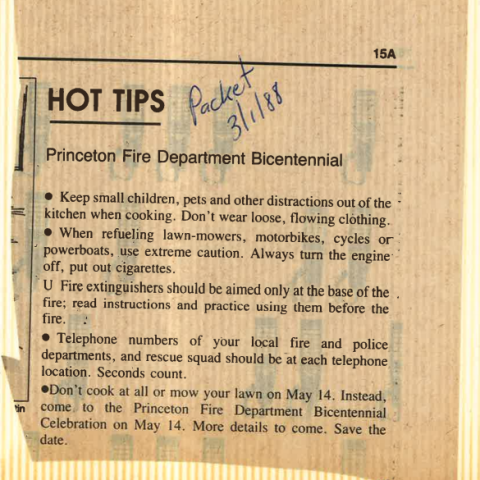 15A
HOT TIPS
Packet
3/1/88
Princeton Fire Department Bicentennial
● Keep small children, pets and other distractions out of the
kitchen when cooking. Don't wear loose, flowing clothing.
● When refueling lawn-mowers, motorbikes, cycles or
powerboats, use extreme caution. Always turn the engine
off, put out cigarettes.
U Fire extinguishers should be aimed only at the base of the
fire; read instructions and practice using them before the
fire.
● Telephone numbers of your local fire and police
departments, and rescue squad should be at each telephone
location. Seconds count.
●Don't cook at all or mow your lawn on May 14. Instead,
come to the Princeton Fire Department Bicentennial
Celebration on May 14. More details to come. Save the
date.